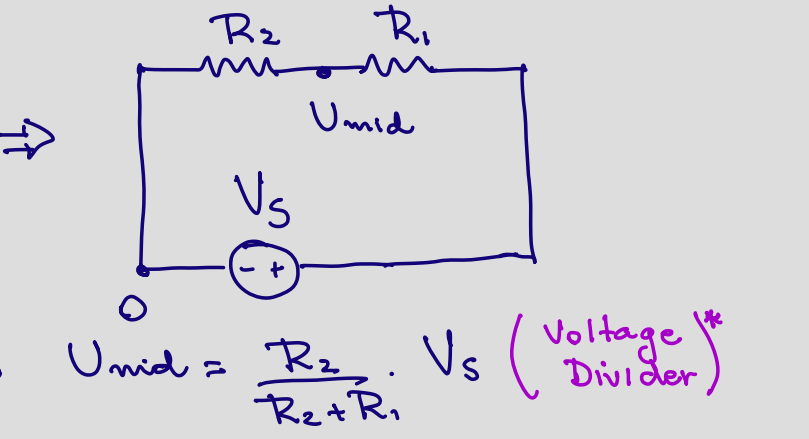 R₂ R₁
U_mid
V_S
- +
0
U_mid = R₂ / (R₂ + R₁) · V_S (Voltage Divider)*